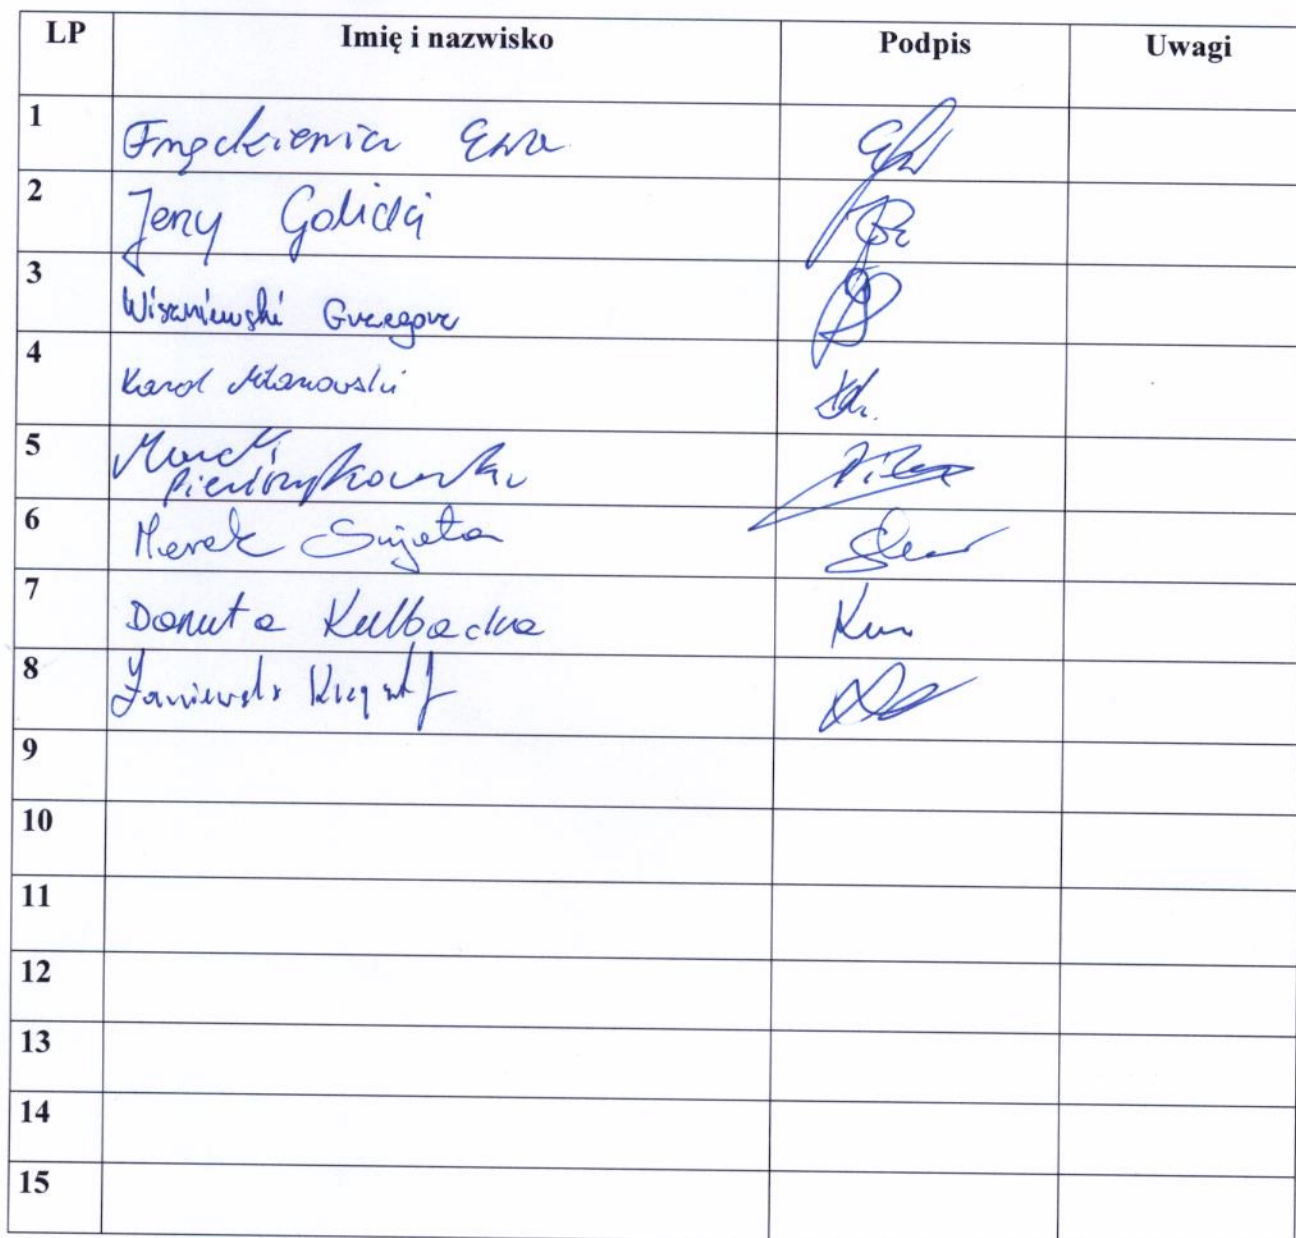 LP Imię i nazwisko Podpis Uwagi
1 Frąckiewicz Ewa
2 Jerzy Golicki
3 Wiszniewski Grzegorz
4 Karol Milanowski
5 Marek
Pierdzykowski
6 Marek Sujeta
7 Danuta Kulbacka
8 Janiewski Krzysztof
9
10
11
12
13
14
15